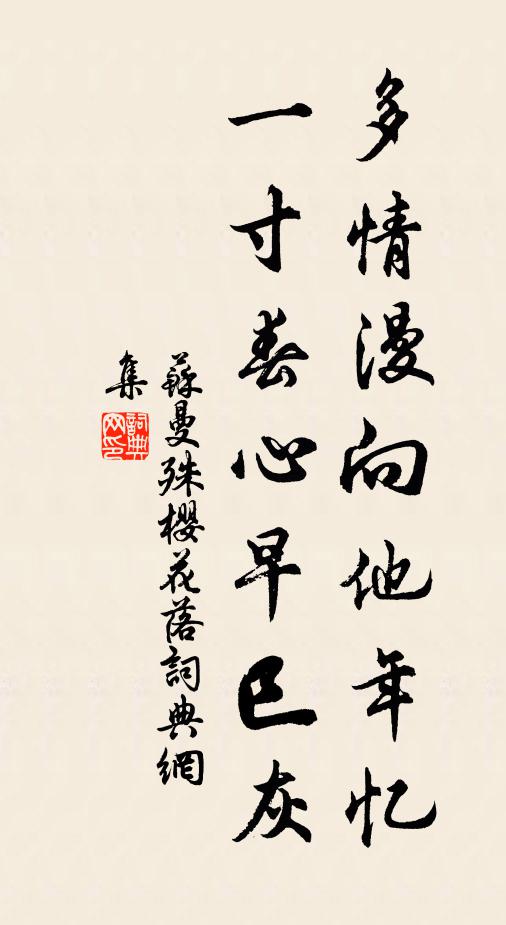 多情漫向他年忆
一寸春心早已灰
蘇曼殊櫻花落詞典網
集
詞典
网印